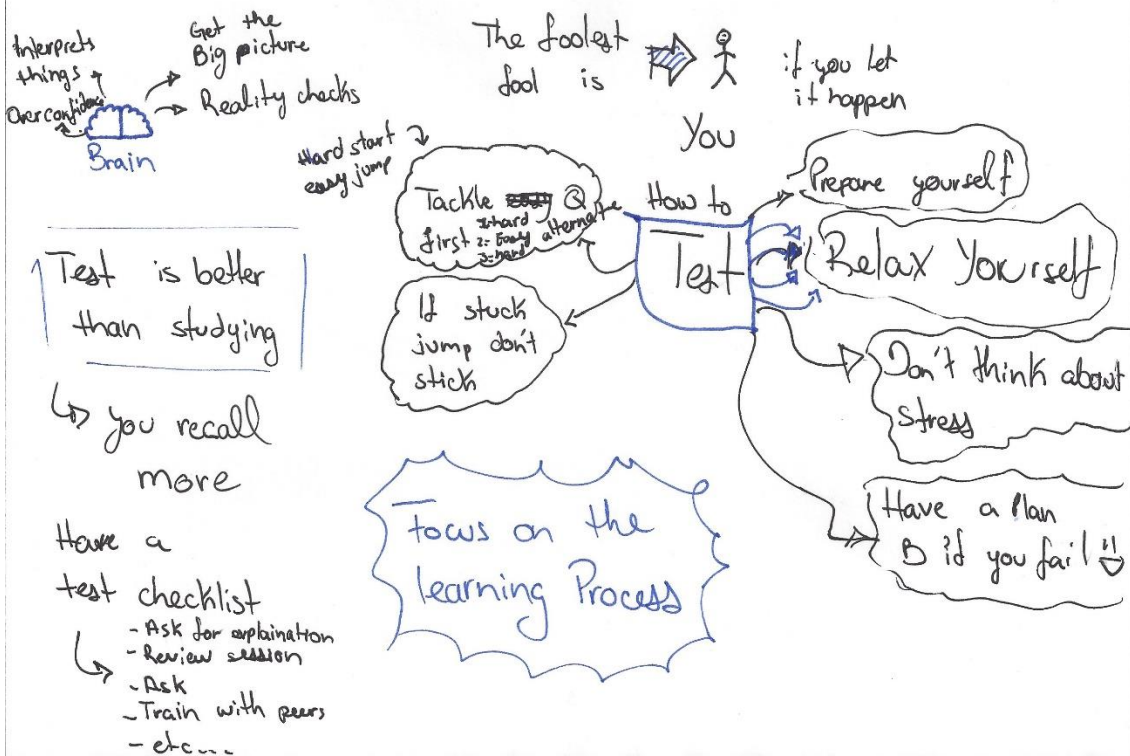 Interprets
things
Overconfidence
Brain
Get the
Big picture
Reality checks
The foolest
fool is
You
if you let
it happen
Hard start
easy jump
Tackle Q
first 1=hard
2= Easy
3=hard
alternate
If stuck
jump don't
stick
How to
Test
Prepare yourself
Relax Yourself
Don't think about
stress
Have a Plan
B if you fail
Test is better
than studying
you recall
more
Have a
test checklist
- Ask for explaination
- Review session
- Ask
- Train with peers
- etc...
Focus on the
learning Process